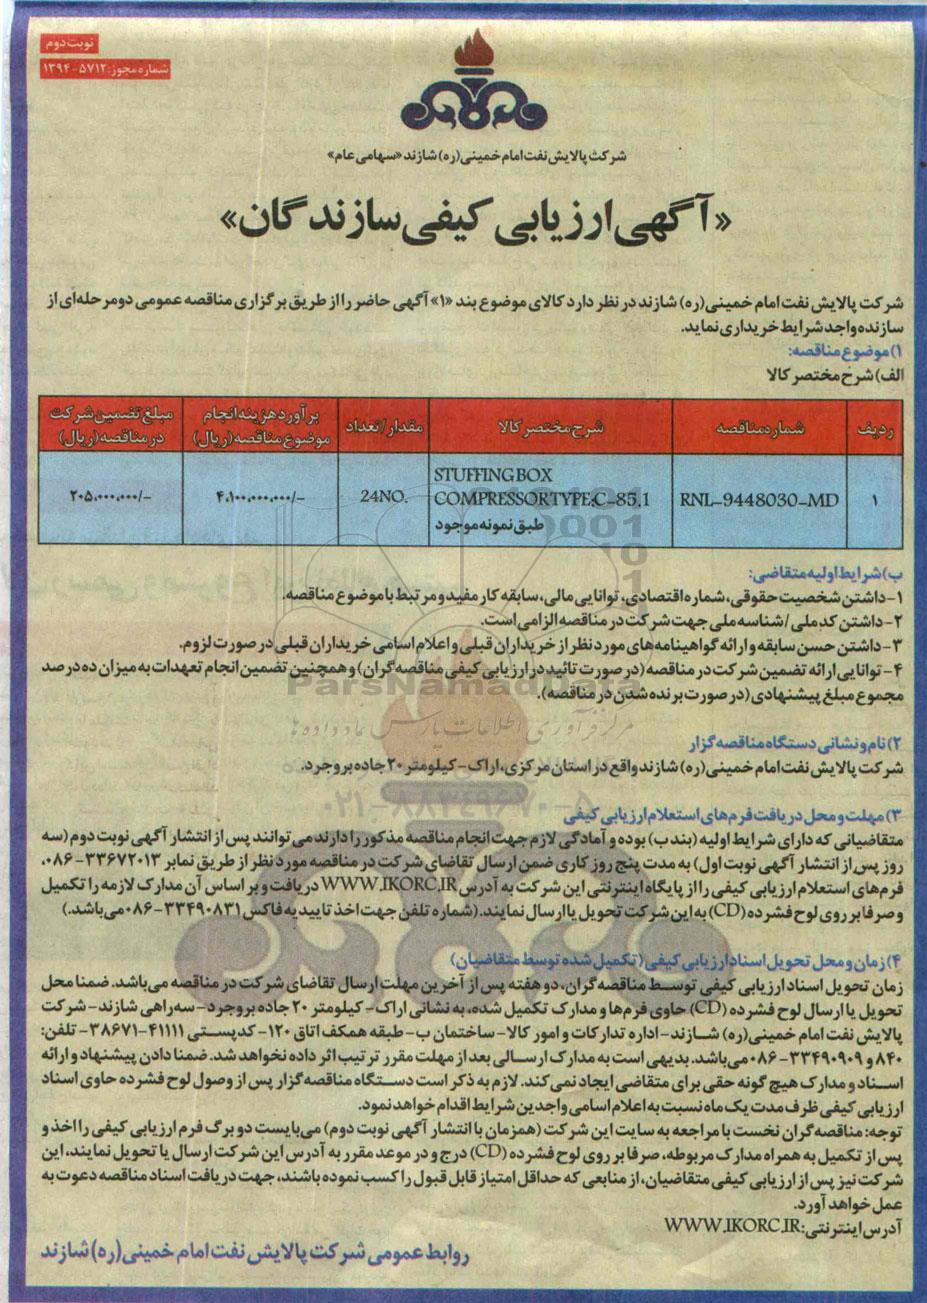 نوبت دوم
شماره مجوز: ۵۷۱۲-۱۳۹۴
شرکت پالایش نفت امام خمینی(ره) شازند «سهامی عام»
«آگهی ارزیابی کیفی سازندگان»
شرکت پالایش نفت امام خمینی(ره) شازند در نظر دارد کالای موضوع بند «۱» آگهی حاضر را از طریق برگزاری مناقصه عمومی دو مرحله‌ای از
سازنده واجد شرایط خریداری نماید.
۱) موضوع مناقصه:
الف) شرح مختصر کالا
ردیف شماره مناقصه شرح مختصر کالا مقدار/تعداد برآورد هزینه انجام موضوع مناقصه (ریال) مبلغ تضمین شرکت در مناقصه (ریال)
۱ RNL-9448030-MD STUFFING BOX COMPRESSOR TYPE.C-85.1 طبق نمونه موجود 24NO. ۴،۱۰۰،۰۰۰،۰۰۰/- ۲۰۵،۰۰۰،۰۰۰/-
ب) شرایط اولیه متقاضی:
۱- داشتن شخصیت حقوقی، شماره اقتصادی، توانایی مالی، سابقه کار مفید و مرتبط با موضوع مناقصه.
۲- داشتن کد ملی / شناسه ملی جهت شرکت در مناقصه الزامی است.
۳- داشتن حسن سابقه و ارائه گواهینامه‌های مورد نظر از خریداران قبلی و اعلام اسامی خریداران قبلی در صورت لزوم.
۴- توانایی ارائه تضمین شرکت در مناقصه (در صورت تائید در ارزیابی کیفی مناقصه گران) و همچنین تضمین انجام تعهدات به میزان ده درصد
مجموع مبلغ پیشنهادی (در صورت برنده شدن در مناقصه).
ParsNamadData
مرکز فرآوری اطلاعات پارس نماد داده‌ها
۲) نام و نشانی دستگاه مناقصه گزار
شرکت پالایش نفت امام خمینی(ره) شازند واقع در استان مرکزی، اراک- کیلومتر ۲۰ جاده بروجرد.
۰۲۱-۸۸۳۴۹۶۷۰-۵
۳) مهلت و محل دریافت فرم‌های استعلام ارزیابی کیفی
متقاضیانی که دارای شرایط اولیه (بند ب) بوده و آمادگی لازم جهت انجام مناقصه مذکور را دارند می توانند پس از انتشار آگهی نوبت دوم (سه
روز پس از انتشار آگهی نوبت اول) به مدت پنج روز کاری ضمن ارسال تقاضای شرکت در مناقصه مورد نظر از طریق نمابر ۳۳۶۷۲۰۱۳-۰۸۶،
فرم‌های استعلام ارزیابی کیفی را از پایگاه اینترنتی این شرکت به آدرس WWW.IKORC.IR دریافت و بر اساس آن مدارک لازمه را تکمیل
و صرفا بر روی لوح فشرده (CD) به این شرکت تحویل یا ارسال نمایند. (شماره تلفن جهت اخذ تاییدیه فاکس ۳۳۴۹۰۸۳۱-۰۸۶ می‌باشد.)
۴) زمان و محل تحویل اسناد ارزیابی کیفی (تکمیل شده توسط متقاضیان)
زمان تحویل اسناد ارزیابی کیفی توسط مناقصه گران، دو هفته پس از آخرین مهلت ارسال تقاضای شرکت در مناقصه می‌باشد. ضمنا محل
تحویل یا ارسال لوح فشرده (CD) حاوی فرم‌ها و مدارک تکمیل شده، به نشانی اراک- کیلومتر ۲۰ جاده بروجرد- سه‌راهی شازند- شرکت
پالایش نفت امام خمینی(ره) شازند- اداره تدارکات و امور کالا- ساختمان ب- طبقه همکف اتاق ۱۲۰- کدپستی ۴۱۱۱۱-۳۸۶۷۱- تلفن:
۸۴۰ و ۳۳۴۹۰۹۰۹-۰۸۶ می‌باشد. بدیهی است به مدارک ارسالی بعد از مهلت مقرر ترتیب اثر داده نخواهد شد. ضمنا دادن پیشنهاد و ارائه
اسناد و مدارک هیچ گونه حقی برای متقاضی ایجاد نمی کند. لازم به ذکر است دستگاه مناقصه گزار پس از وصول لوح فشرده حاوی اسناد
ارزیابی کیفی ظرف مدت یک ماه نسبت به اعلام اسامی واجدین شرایط اقدام خواهد نمود.
توجه: مناقصه گران نخست با مراجعه به سایت این شرکت (همزمان با انتشار آگهی نوبت دوم) می‌بایست دو برگ فرم ارزیابی کیفی را اخذ و
پس از تکمیل به همراه مدارک مربوطه، صرفا بر روی لوح فشرده (CD) درج و در موعد مقرر به آدرس این شرکت ارسال یا تحویل نمایند، این
شرکت نیز پس از ارزیابی کیفی متقاضیان، از منابعی که حداقل امتیاز قابل قبول را کسب نموده باشند، جهت دریافت اسناد مناقصه دعوت به
عمل خواهد آورد.
آدرس اینترنتی: WWW.IKORC.IR
روابط عمومی شرکت پالایش نفت امام خمینی(ره) شازند